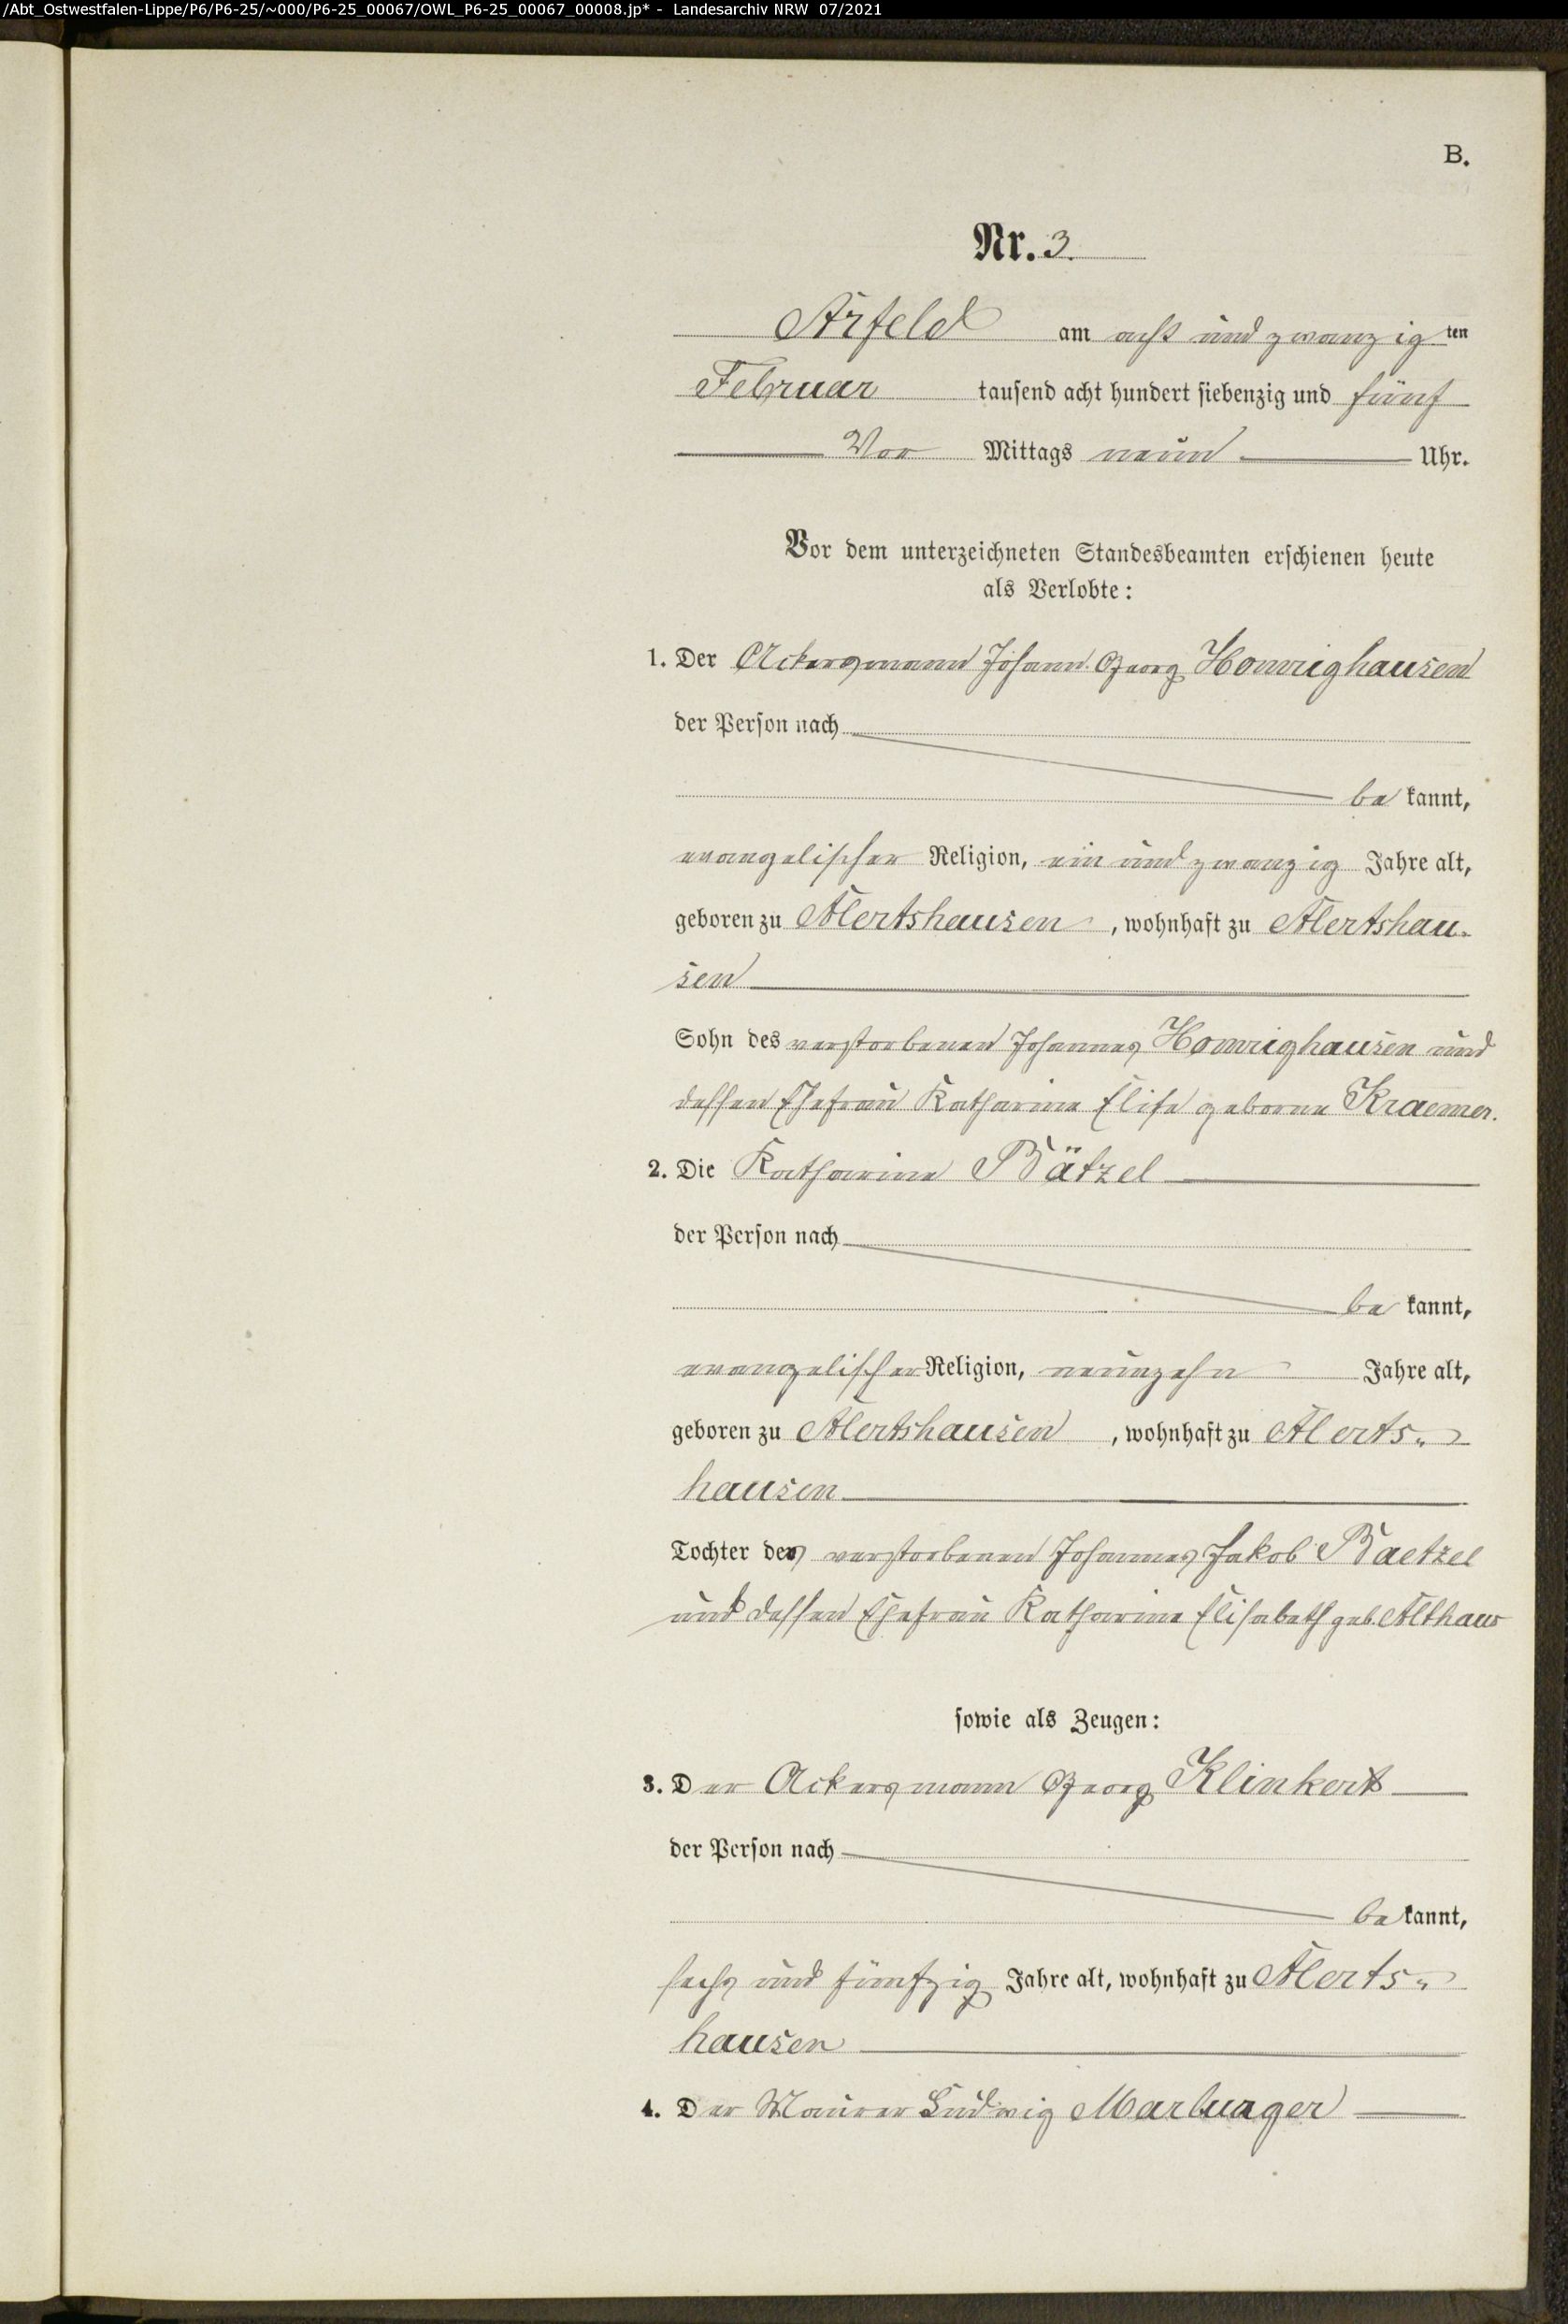 /Abt_Ostwestfalen-Lippe/P6/P6-25/~000/P6-25_00067/OWL_P6-25_00067_00008.jp* - Landesarchiv NRW 07/2021
B.
Nr. 3.
Arfeld am acht und zwanzigten
Februar tausend acht hundert siebenzig und fünf
Vor Mittags neun Uhr.
Vor dem unterzeichneten Standesbeamten erschienen heute
als Verlobte:
1. Der Ackersmann Johann Georg Homrighausen
der Person nach
be kannt,
evangelischer Religion, ein und zwanzig Jahre alt,
geboren zu Alertshausen, wohnhaft zu Alertshau-
sen
Sohn des verstorbenen Johannes Homrighausen und
dessen Ehefrau Katharine Elise geborne Kraemer.
2. Die Katharine Bätzel
der Person nach
be kannt,
evangelischer Religion, neunzehn Jahre alt,
geboren zu Alertshausen, wohnhaft zu Alerts-
hausen
Tochter des verstorbenen Johannes Jakob Baetzel
und dessen Ehefrau Katharine Elisabeth geb. Althaus
sowie als Zeugen:
3. Der Ackersmann Georg Klinkert
der Person nach
be kannt,
sechs und fünfzig Jahre alt, wohnhaft zu Alerts-
hausen
4. Der Maurer Ludwig Marburger